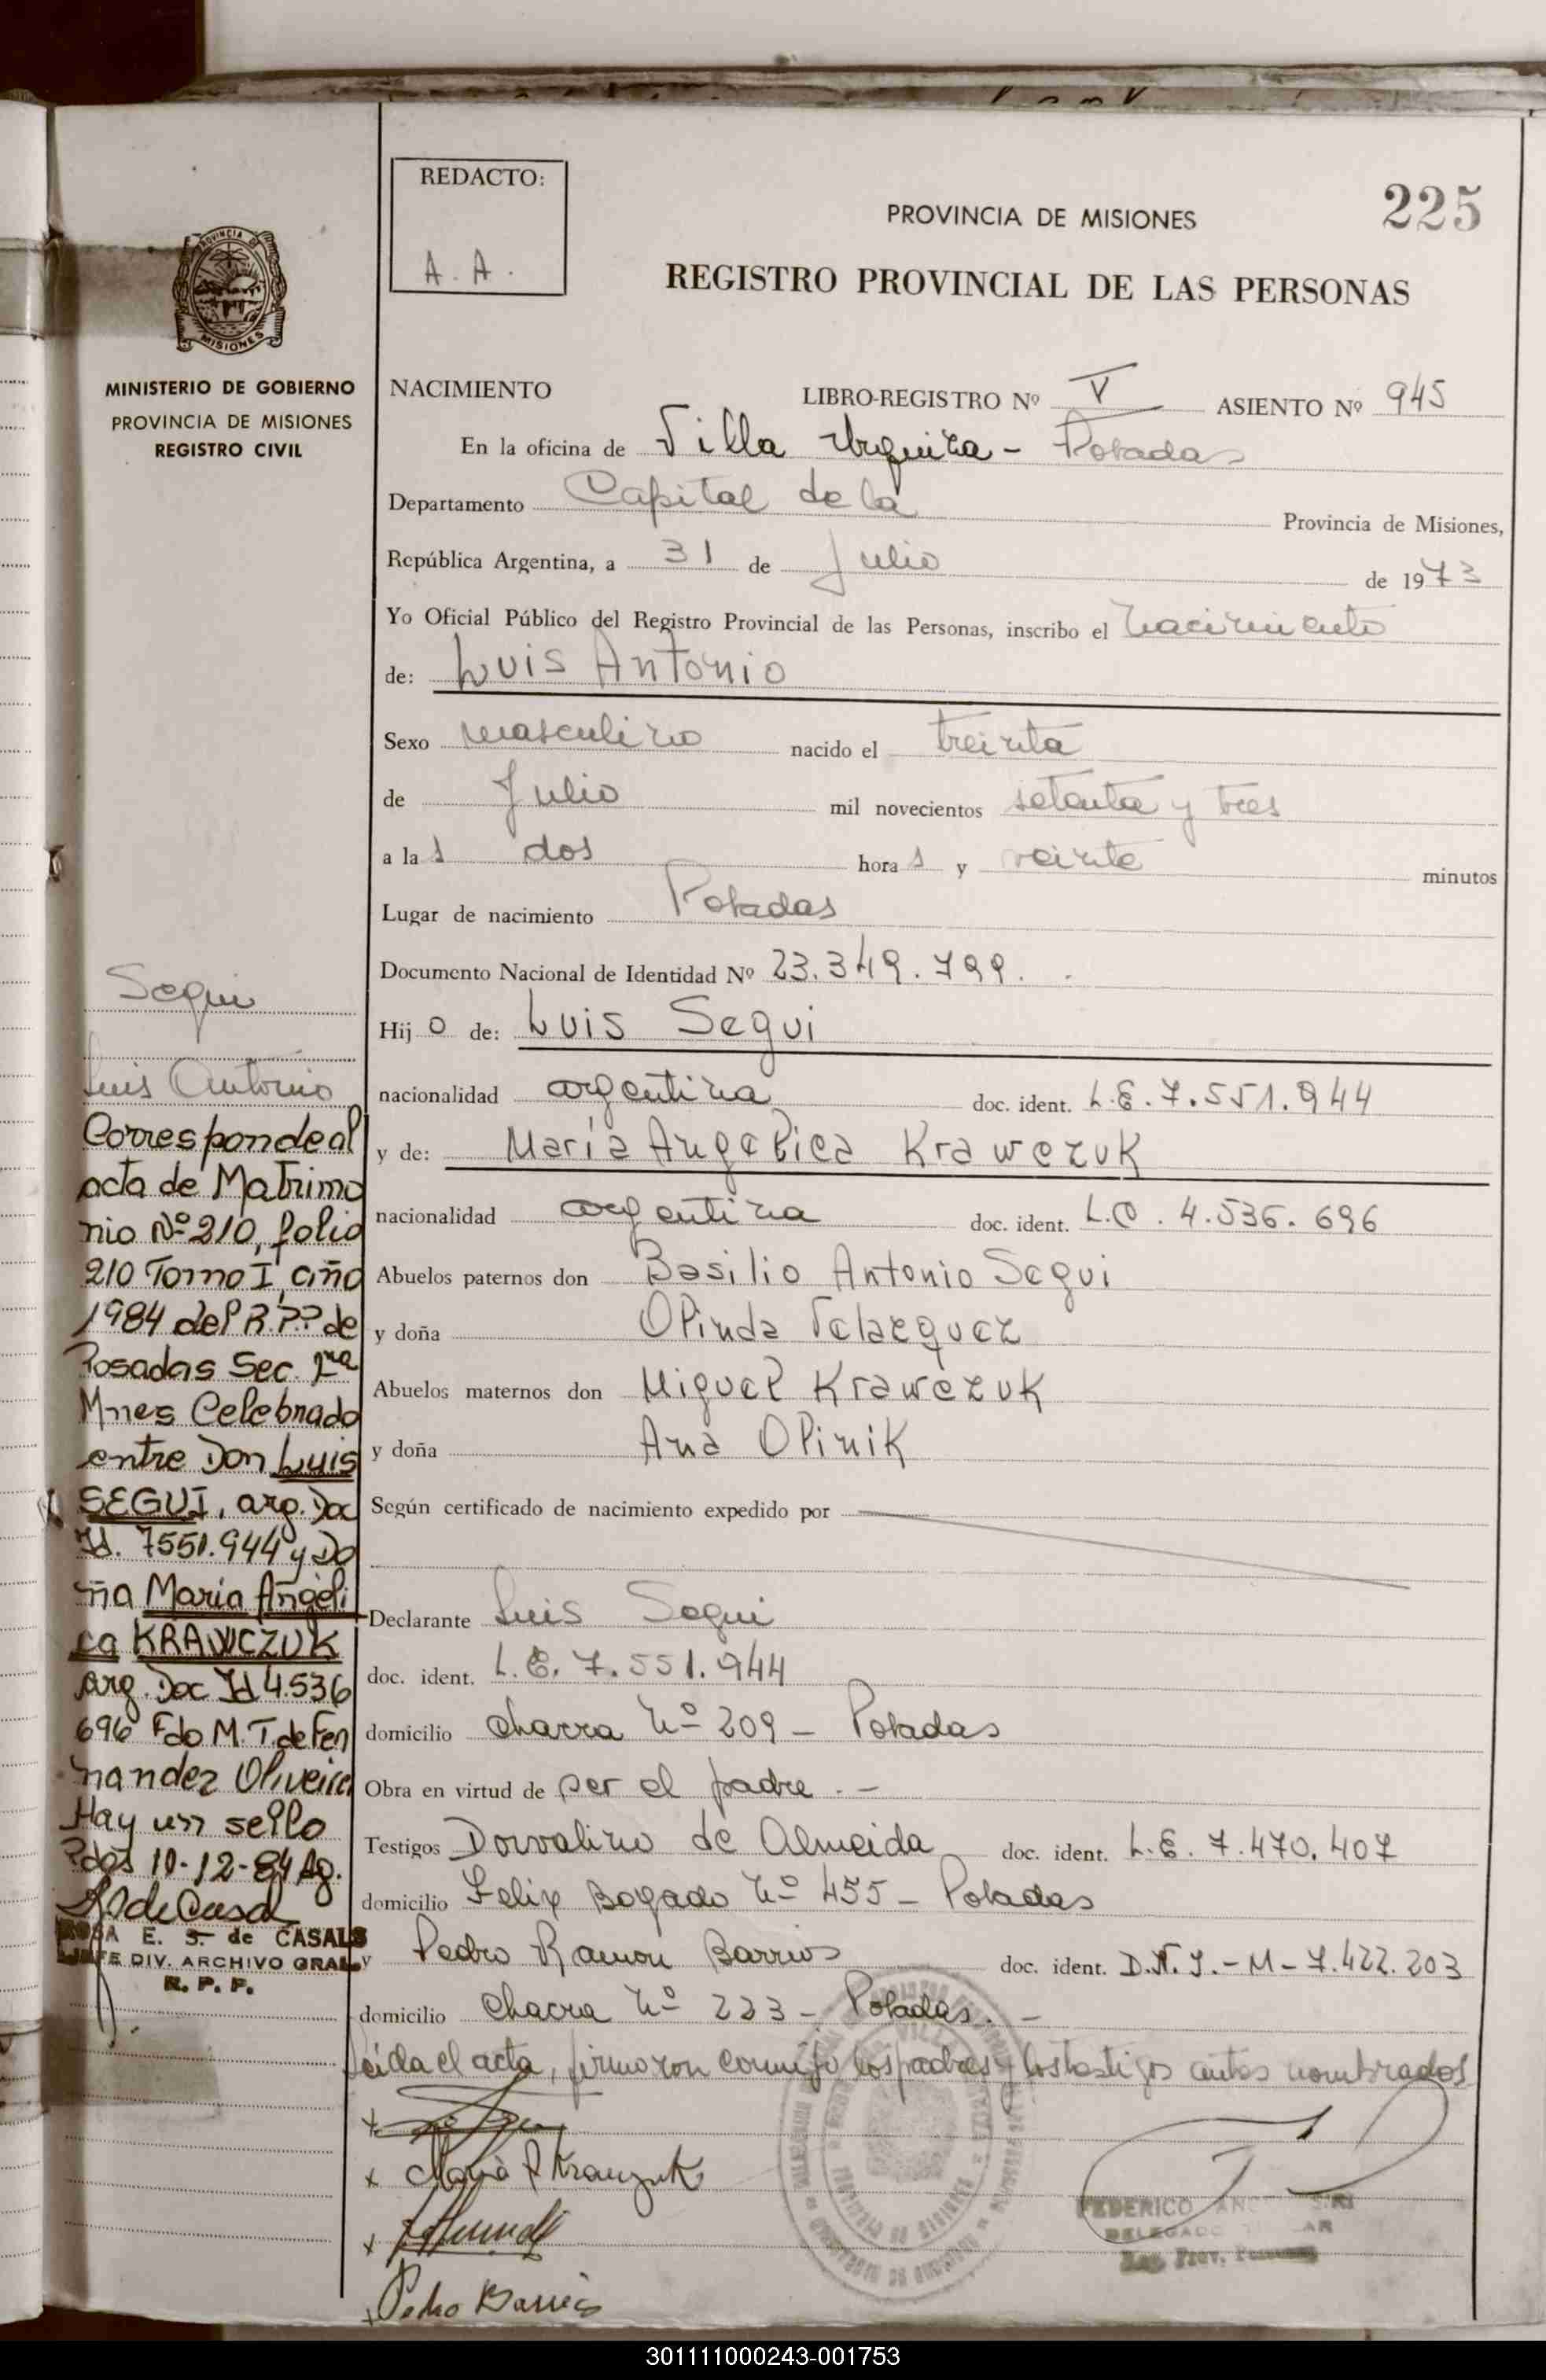 REDACTO:
A. A.
225
PROVINCIA DE MISIONES
REGISTRO PROVINCIAL DE LAS PERSONAS
PROVINCIA DE
MISIONES
MINISTERIO DE GOBIERNO
PROVINCIA DE MISIONES
REGISTRO CIVIL
NACIMIENTO LIBRO-REGISTRO Nº V ASIENTO Nº 945
En la oficina de Villa Urquiza - Posadas
Departamento Capital de la Provincia de Misiones,
República Argentina, a 31 de Julio de 1973
Yo Oficial Público del Registro Provincial de las Personas, inscribo el nacimiento
de: Luis Antonio
Sexo masculino nacido el treinta
de Julio mil novecientos setenta y tres
a las dos horas y veinte minutos
Lugar de nacimiento Posadas
Documento Nacional de Identidad Nº 23.349.799.
Hijo de: Luis Segui
nacionalidad argentina doc. ident. L.E. 7.551.944
y de: María Angelica Krawczuk
nacionalidad argentina doc. ident. L.C. 4.536.696
Abuelos paternos don Basilio Antonio Segui
y doña Olinda Velazquez
Abuelos maternos don Miguel Krawczuk
y doña Ana Olinik
Según certificado de nacimiento expedido por
Declarante Luis Segui
doc. ident. L.E. 7.551.944
domicilio chacra Nº 209 - Posadas
Obra en virtud de ser el padre. -
Testigos Dorvalino de Almeida doc. ident. L.E. 7.470.407
domicilio Felix Bogado Nº 455 - Posadas
y Pedro Ramon Barrios doc. ident. D.N.I. - M - 7.422.203
domicilio chacra Nº 223 - Posadas. -
Leída el acta, firmaron conmigo los padres y los testigos antes nombrados
Maria A Krawczuk
Pedro Barrios
FEDERICO
DELEGADO
Reg. Prov.
Segui
Luis Antonio
Corresponde al
acta de Matrimo
nio Nº 210, folio
210 Tomo I, año
1984 del R.P.P. de
Posadas Sec. 1ra
Mnes Celebrado
entre Don Luis
SEGUI, arg. Doc
Id. 7551.944 y Do
ña María Angéli
ca KRAWCZUK
arg. Doc Id 4.536
696 Fdo M.T. de Fer
nandez Oliveira
Hay un sello
Pdas 10-12-84 Ag.
ROSA E. S. de CASALS
JEFE DIV. ARCHIVO GRAL
R. P. P.
301111000243-001753